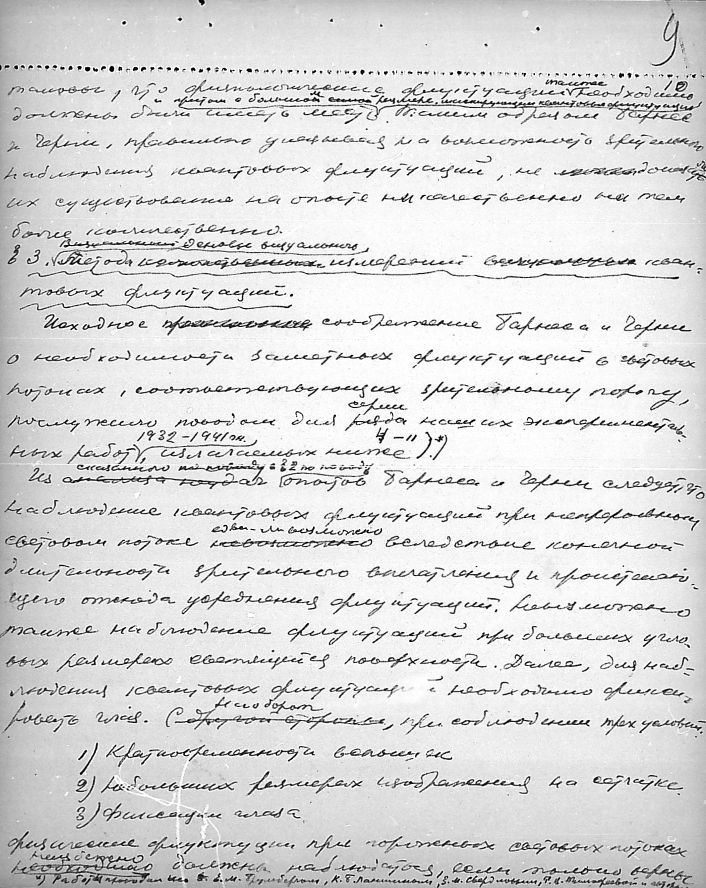 9
таковы, что физиологические флуктуации также необходимо
и притом в большом размере, маскирующем квантовые флуктуации
должны были иметь место. Таким образом Барнес
и Черни, правильно указывая на возможность зрительного
наблюдения квантовых флуктуаций, не доказали
их существование на опыте ни качественно ни тем
более количественно.
Визуальный основы визуального
§ 3. Метода качественных измерений визуальных кван-
товых флуктуаций.
Исходное соображение Барнеса и Черни
о необходимости заметных флуктуаций в световых
потоках, соответствующих зрительному порогу,
серии
послужило поводом для ряда наших эксперименталь-
1932–1941 гг. 4–11
ных работ, излагаемых ниже *).
сказанного в § 2 по поводу
Из анализа опытов Барнеса и Черни следует, что
наблюдение квантовых флуктуаций при непрерывном
едва-ли возможно
световом потоке невозможно вследствие конечной
длительности зрительного впечатления и проистекаю-
щего отсюда усреднения флуктуаций. Невозможно
также наблюдение флуктуаций при больших угло-
вых размерах светящейся поверхности. Далее, для наб-
людения квантовых флуктуаций необходимо фикси-
Наоборот
ровать глаз. С другой стороны, при соблюдении трех условий:
1) Кратковременности вспышек
2) Небольших размерах изображения на сетчатке
3) Фиксации глаза
физические флуктуации при пороговых световых потоках
неизбежно
необходимо должны наблюдаться, если только верны
*) Работы с Е. М. Брумбергом, К. Б. Паншиным, З. М. Свердловым, Т. В. Тимофеевой